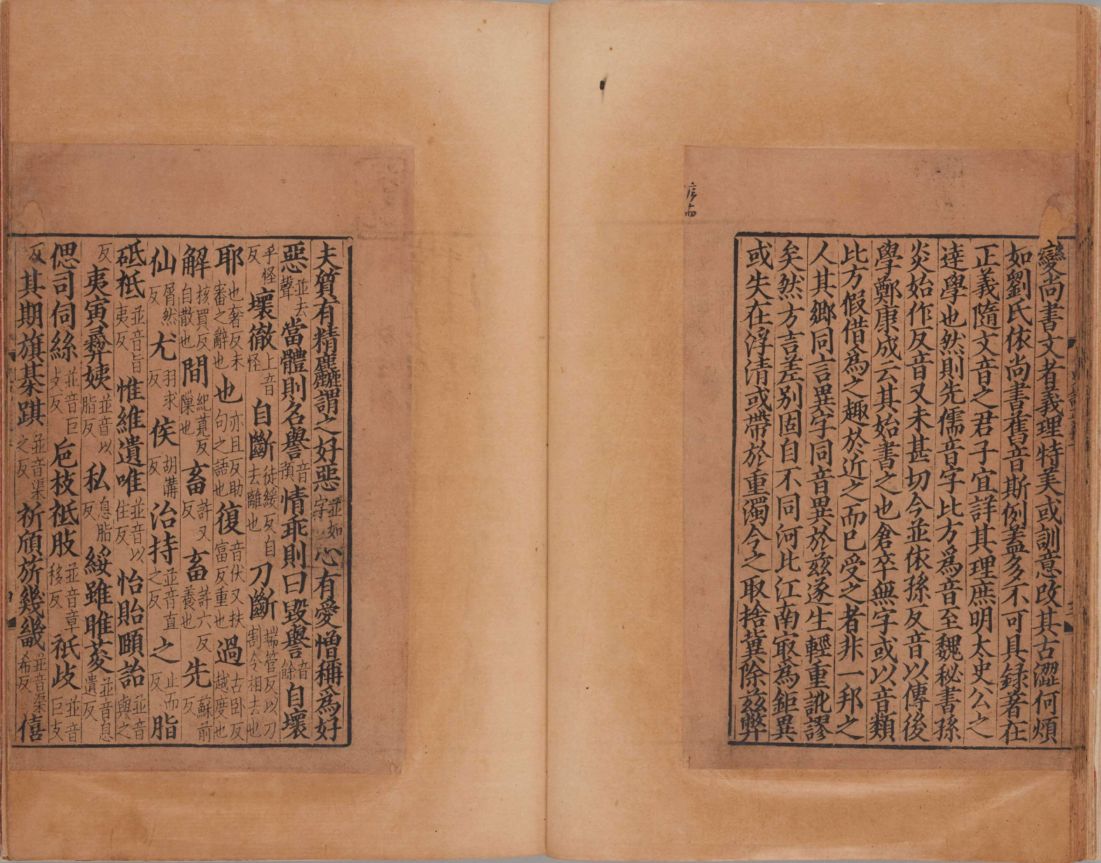 變尚書文者義理特美或訓意改其古澀何煩
如劉氏依尚書舊音斯例蓋多不可具録著在
正義隨文音之君子宜詳其理庶明太史公之
達學也然則先儒音字比方爲音至魏秘書孫
炎始作反音又未甚切今並依孫反音以傳後
學鄭康成云其始書之也倉卒無字或以音類
比方假借爲之趣於近之而已受之者非一邦之
人其鄉同言異字同音異於兹遂生輕重訛謬
矣然方言差别固自不同河北江南㝡為鉅異
或失在浮清或帶於重濁今之取捨冀除兹弊
夫質有精麤謂之好惡並如字心有愛憎稱爲好
惡並去聲當體則名譽音南情乖則曰毀譽音餘自壞
乎怪反壞徹上音怪自斷徒緩反自去離也刀斷端管反以刀割令相去也
耶也奢反未審之辭也也亦且反助句之語也復音伏又扶富反重也過古卧反越度也
解核買反自散也間紀莧反隟也畜許又反畜許六反養也先蘇前反
仙屑然反尤羽求反侯胡溝反治持並音直之反之止而反脂
砥祇並音旨夷反惟維遺唯並音以隹反怡貽頤詒並音與之
反夷寅彝姨並音以脂反私息脂反綏雖睢荽並音息遺反
偲司伺絲並音巨支反巵枝祗肢並音章移反祇歧並音巨支
反其期旗棊踑並音渠之反祈頎旂幾畿並音渠希反僖